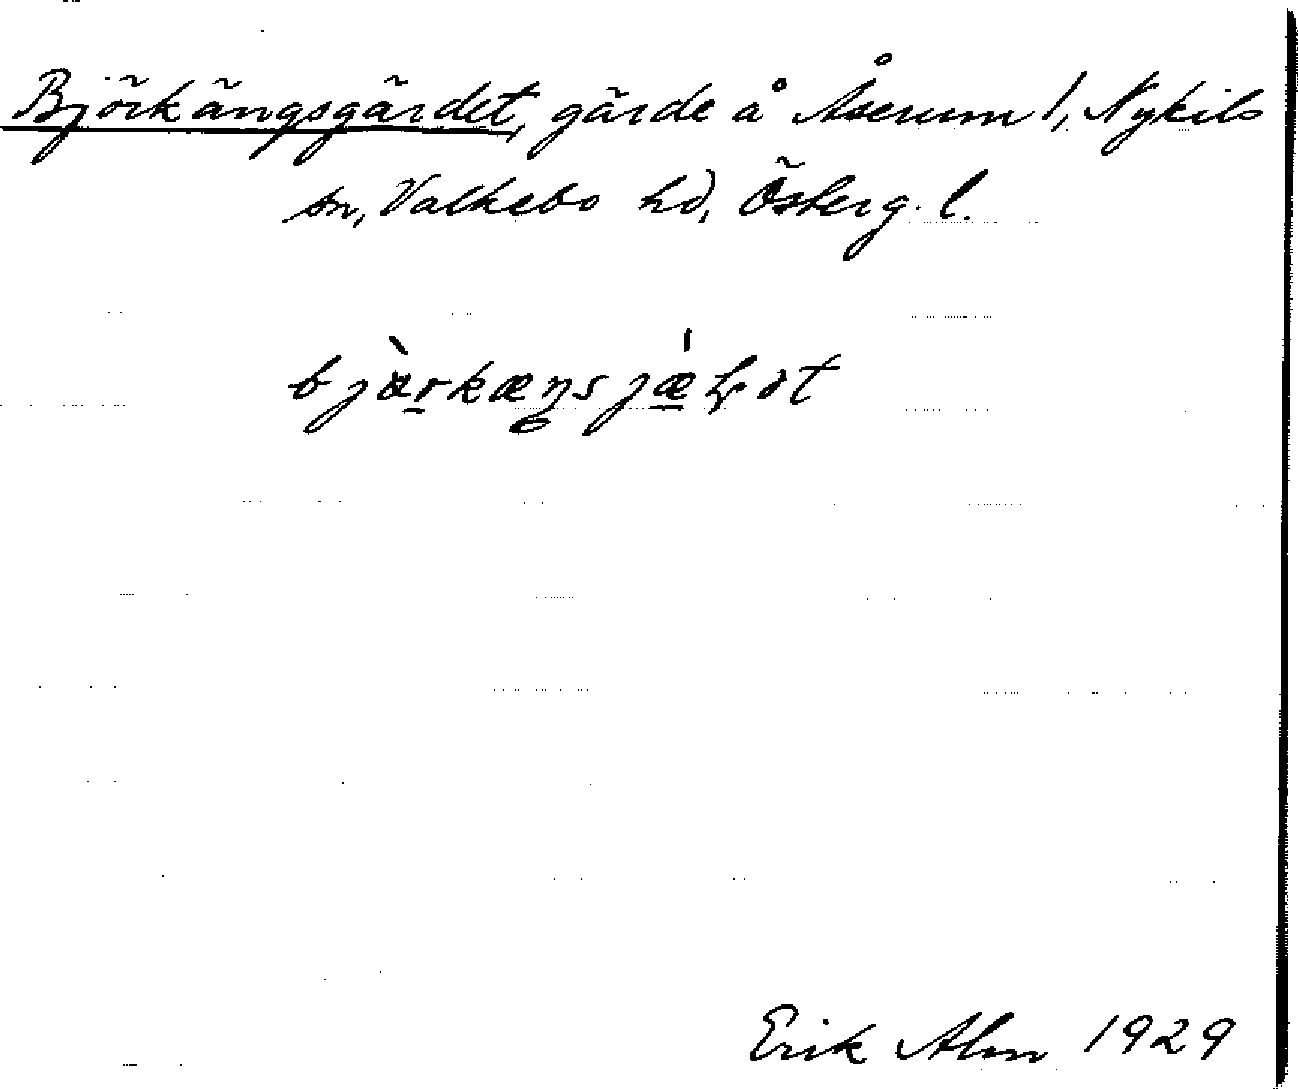 Björkängsgärdet, gärde å Åserum 1, Nykils
sn, Valkebo hd, Österg. l.
Erik Alm 1929